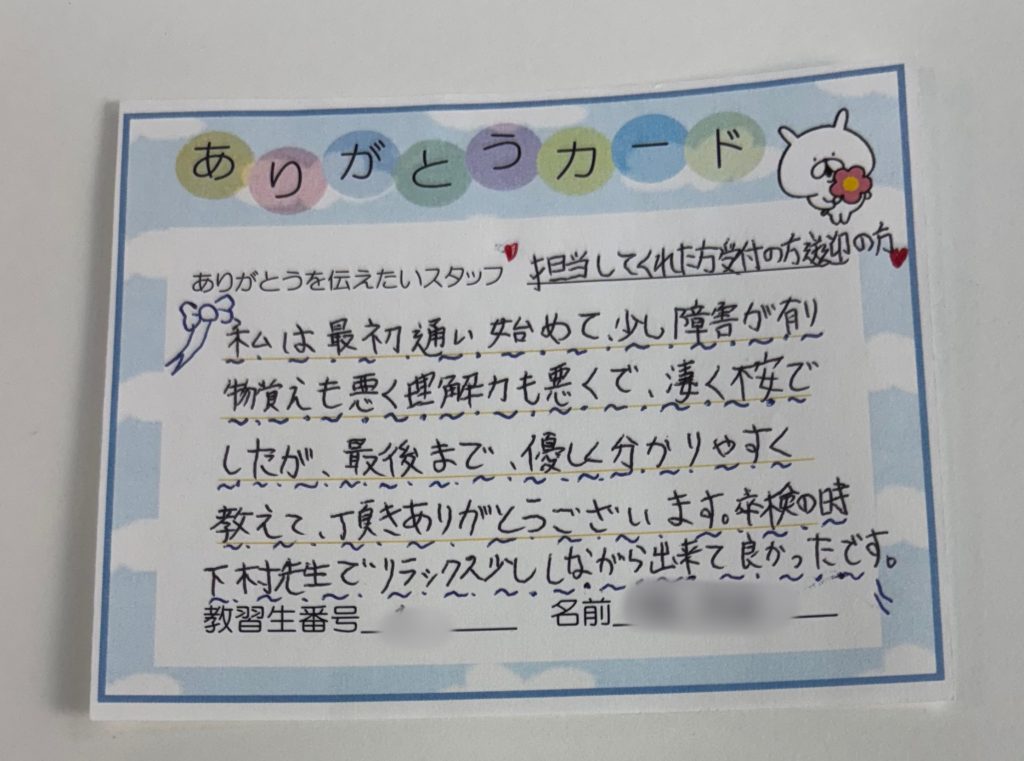 ありがとうカード
ありがとうを伝えたいスタッフ 担当してくれた方受付の方送迎の方
私は最初通い始めて、少し障害が有り
物覚えも悪く理解力も悪くで、凄く不安で
したが、最後まで、優しく分かりやすく
教えて、頂きありがとうございます。卒検の時
下村先生でリラックス少ししながら出来て良かったです。
教習生番号 名前